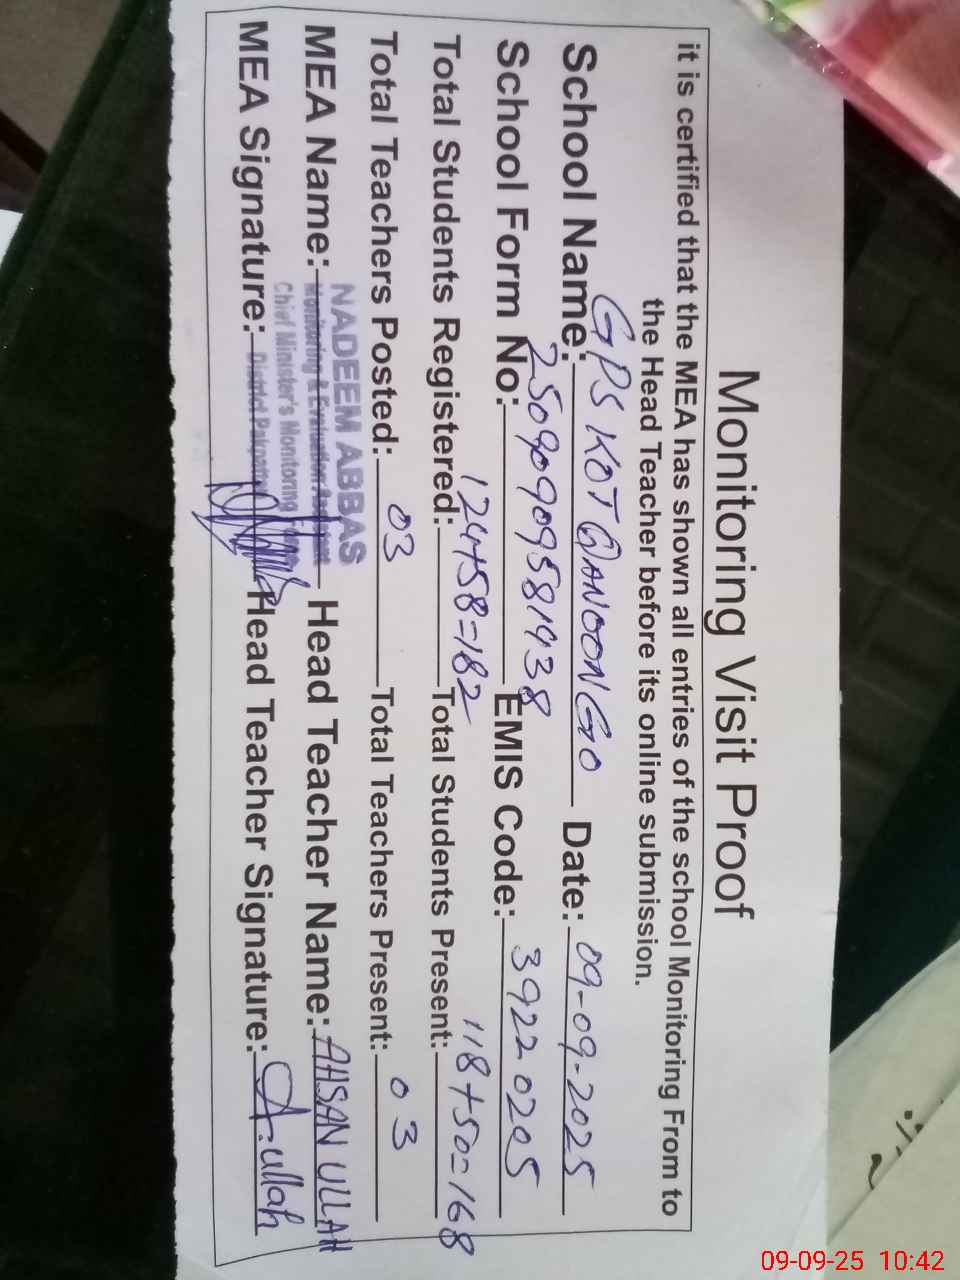 Monitoring Visit Proof
it is certified that the MEA has shown all entries of the school Monitoring From to
the Head Teacher before its online submission.
School Name: GPS KOT QANOONGO Date: 09-09-2025
School Form No: 25090909581938 EMIS Code: 39220205
Total Students Registered: 124+58=182 Total Students Present: 118+50=168
Total Teachers Posted: 03 Total Teachers Present: 03
MEA Name: NADEEM ABBAS Head Teacher Name: AHSAN ULLAH
Monitoring & Evaluation Assistant
Chief Minister's Monitoring
MEA Signature: District Head Teacher Signature: A.ullah
09-09-25 10:42